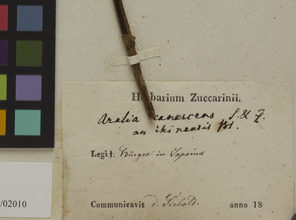 Herbarium Zuccarinii,
Aralia canescens S. & Z.
an
Legit. Bürger in Japonia
Communicavit d. Siebold. anno 18
/02010